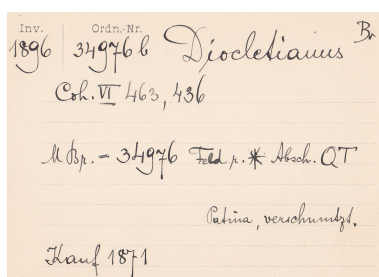 Inv. Ordn.-Nr.
1896 34976 b Diocletianus Br
Coh. VI 463, 436
M Br. = 34976 Feld r. * Absch. QT
Patina, verschmutzt.
Kauf 1871